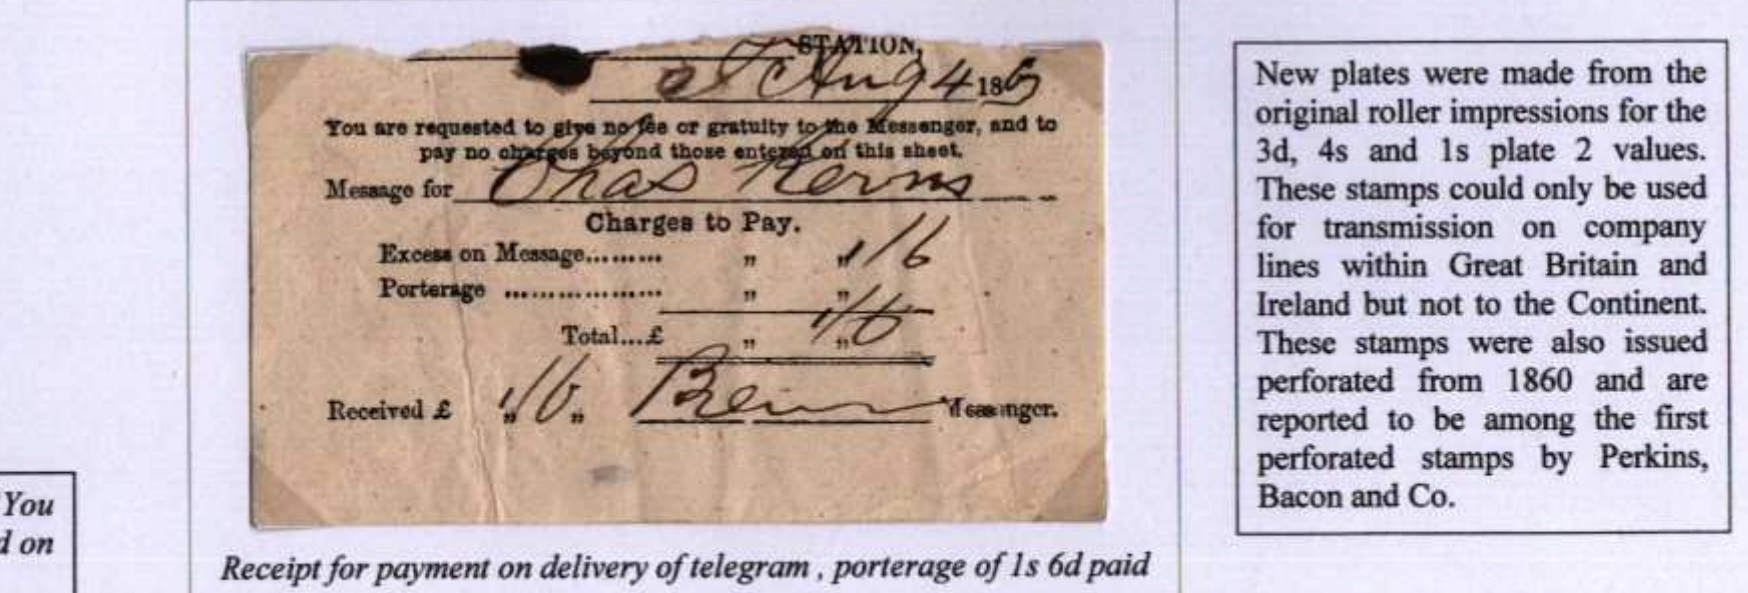 STATION,
Aug 4 186
You are requested to give no fee or gratuity to the Messenger, and to
pay no charges beyond those entered on this sheet.
Message for Chas Kerns
Charges to Pay.
Excess on Message......... " " 1/6
Porterage .................. " "
Total...£ " " 1/6
Received £ " 1/6 " Messenger.
Receipt for payment on delivery of telegram , porterage of 1s 6d paid
New plates were made from the
original roller impressions for the
3d, 4s and 1s plate 2 values.
These stamps could only be used
for transmission on company
lines within Great Britain and
Ireland but not to the Continent.
These stamps were also issued
perforated from 1860 and are
reported to be among the first
perforated stamps by Perkins,
Bacon and Co.
You
d on